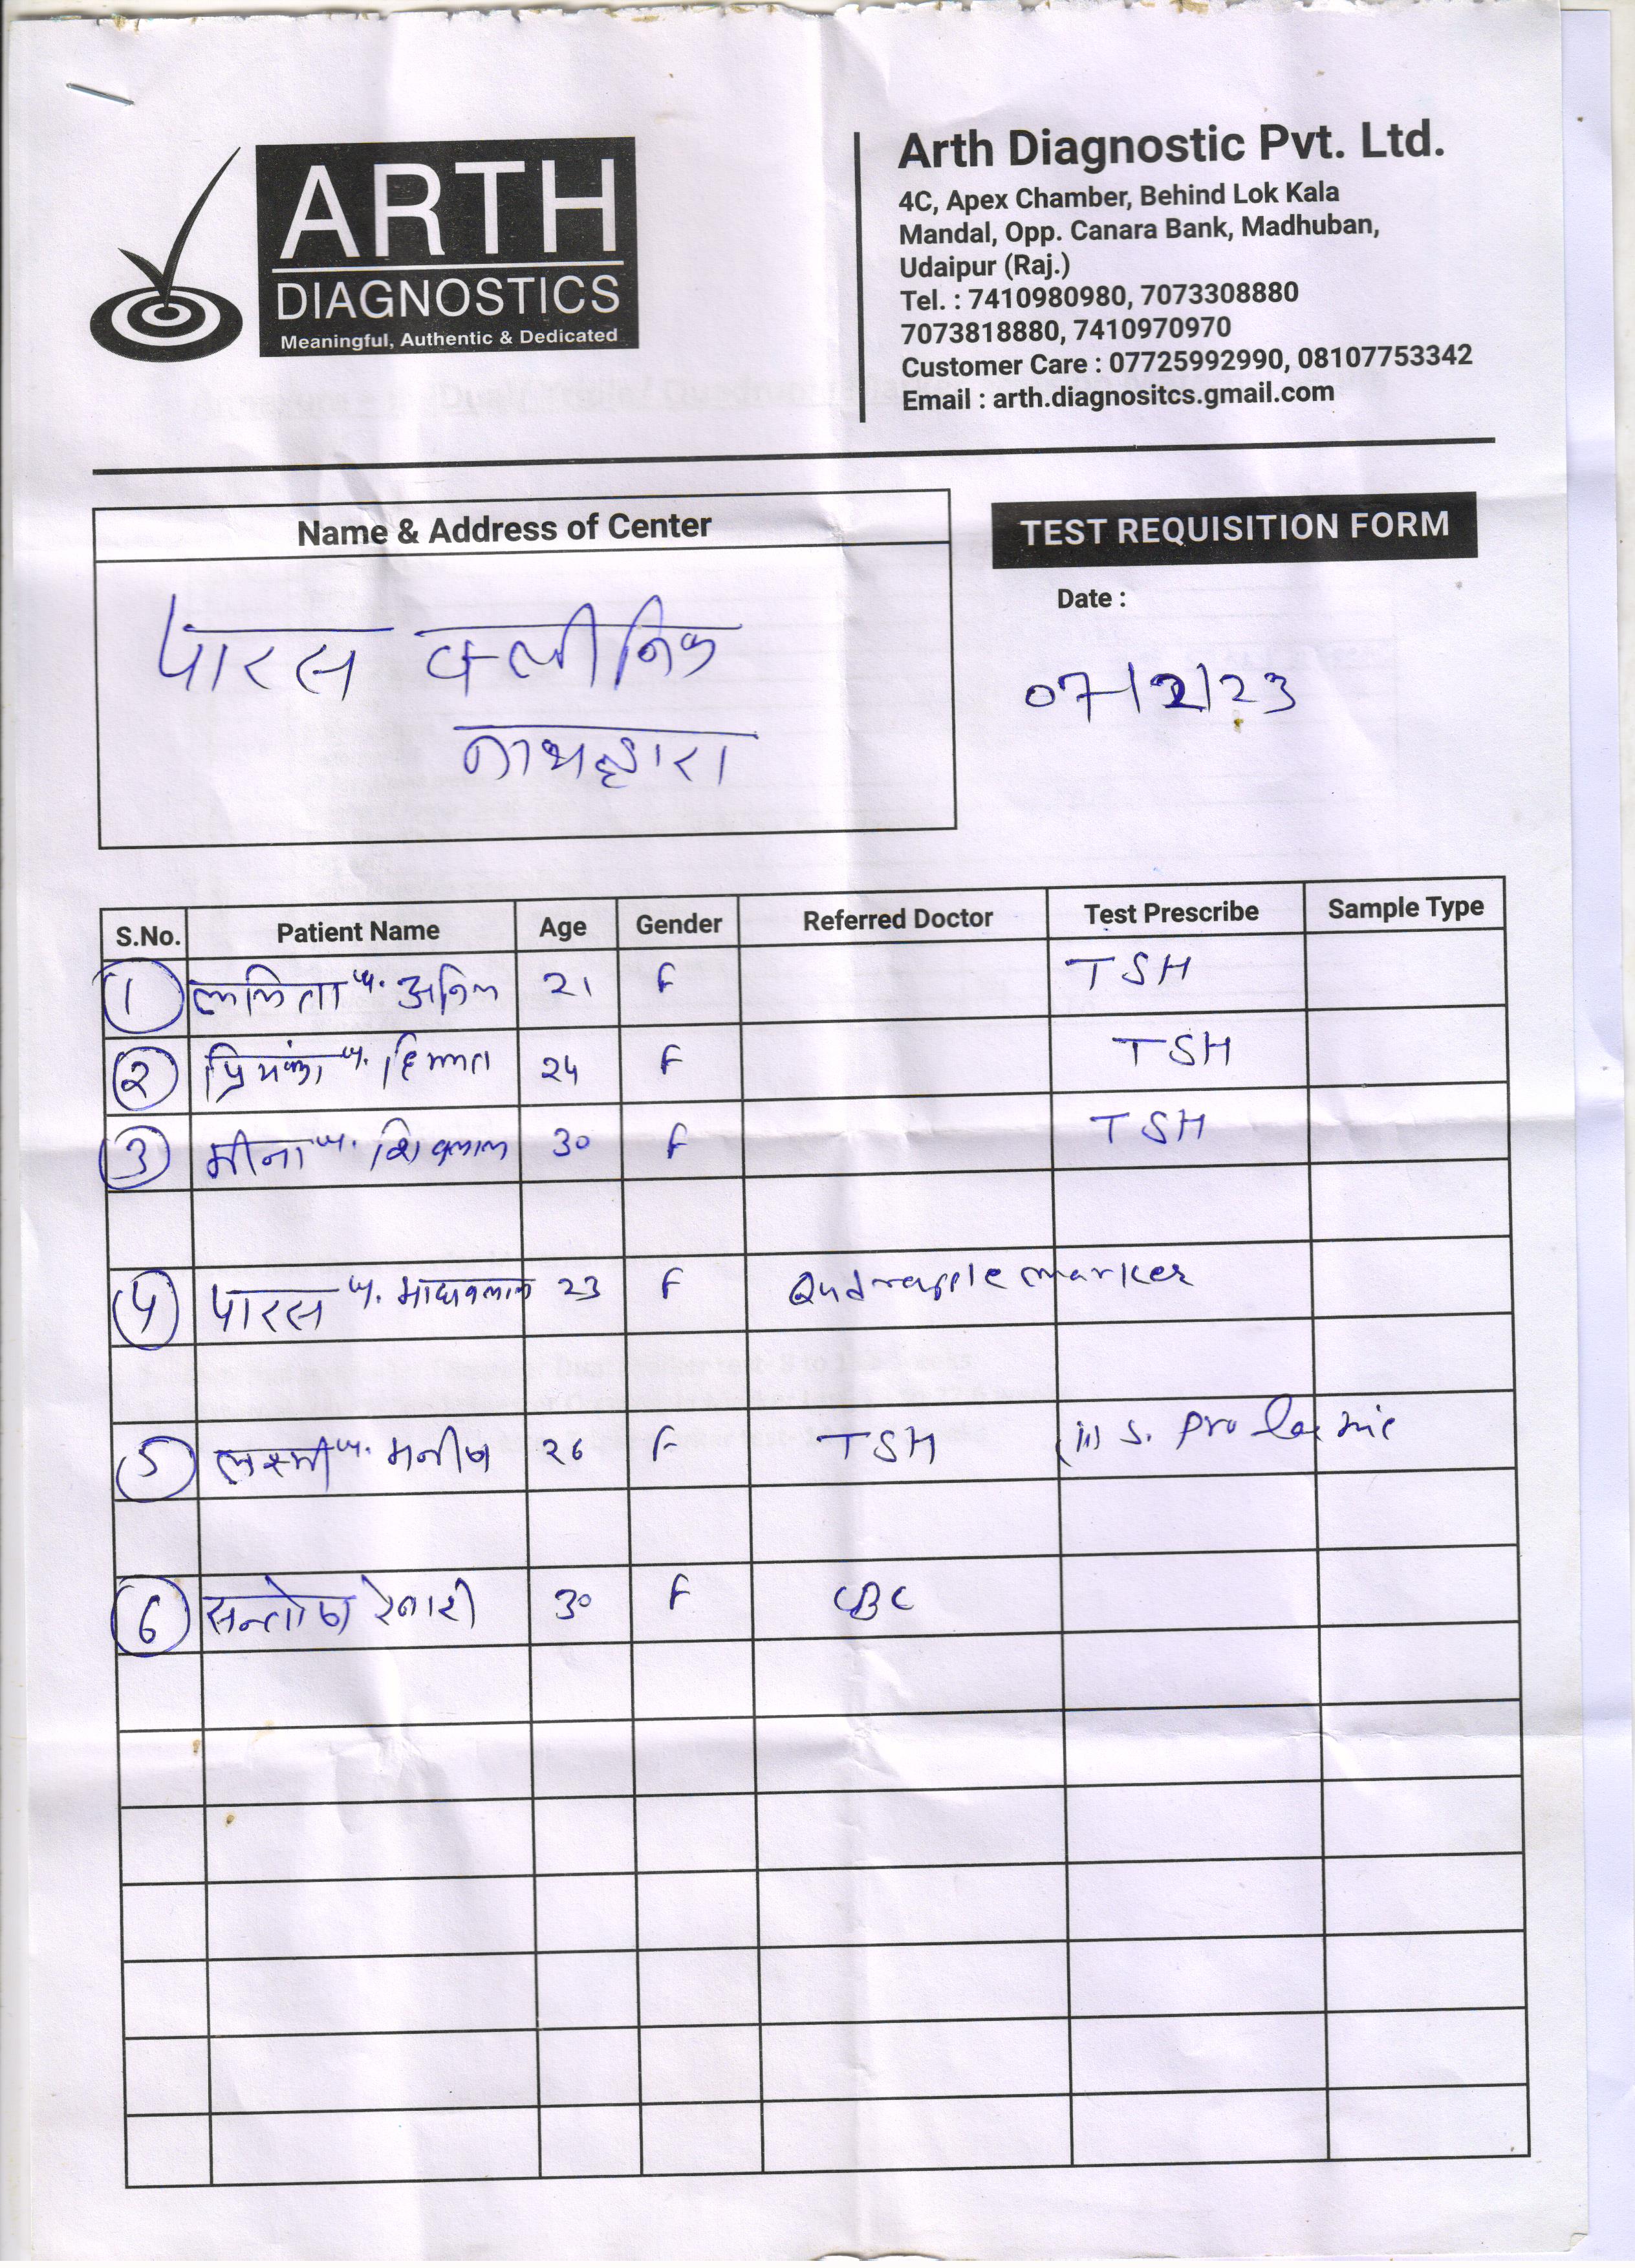 ARTH
DIAGNOSTICS
Meaningful, Authentic & Dedicated
Arth Diagnostic Pvt. Ltd.
4C, Apex Chamber, Behind Lok Kala
Mandal, Opp. Canara Bank, Madhuban,
Udaipur (Raj.)
Tel. : 7410980980, 7073308880
7073818880, 7410970970
Customer Care : 07725992990, 08107753342
Email : arth.diagnositcs.gmail.com
Name & Address of Center
पारस क्लीनिक
नाथद्वारा
TEST REQUISITION FORM
Date :
07/2/23
S.No. Patient Name Age Gender Referred Doctor Test Prescribe Sample Type
1 ललिता w. अनिल 21 F TSH
2 प्रियंका w. हिम्मत 24 F TSH
3 मीना w. शिवलाल 30 F TSH
4 पारस w. माधवलाल 23 F Qudrapple marker
5 लक्ष्मी w. मनीष 26 F TSH (ii) S. Prolactic
6 सन्तोष 30 F CBC